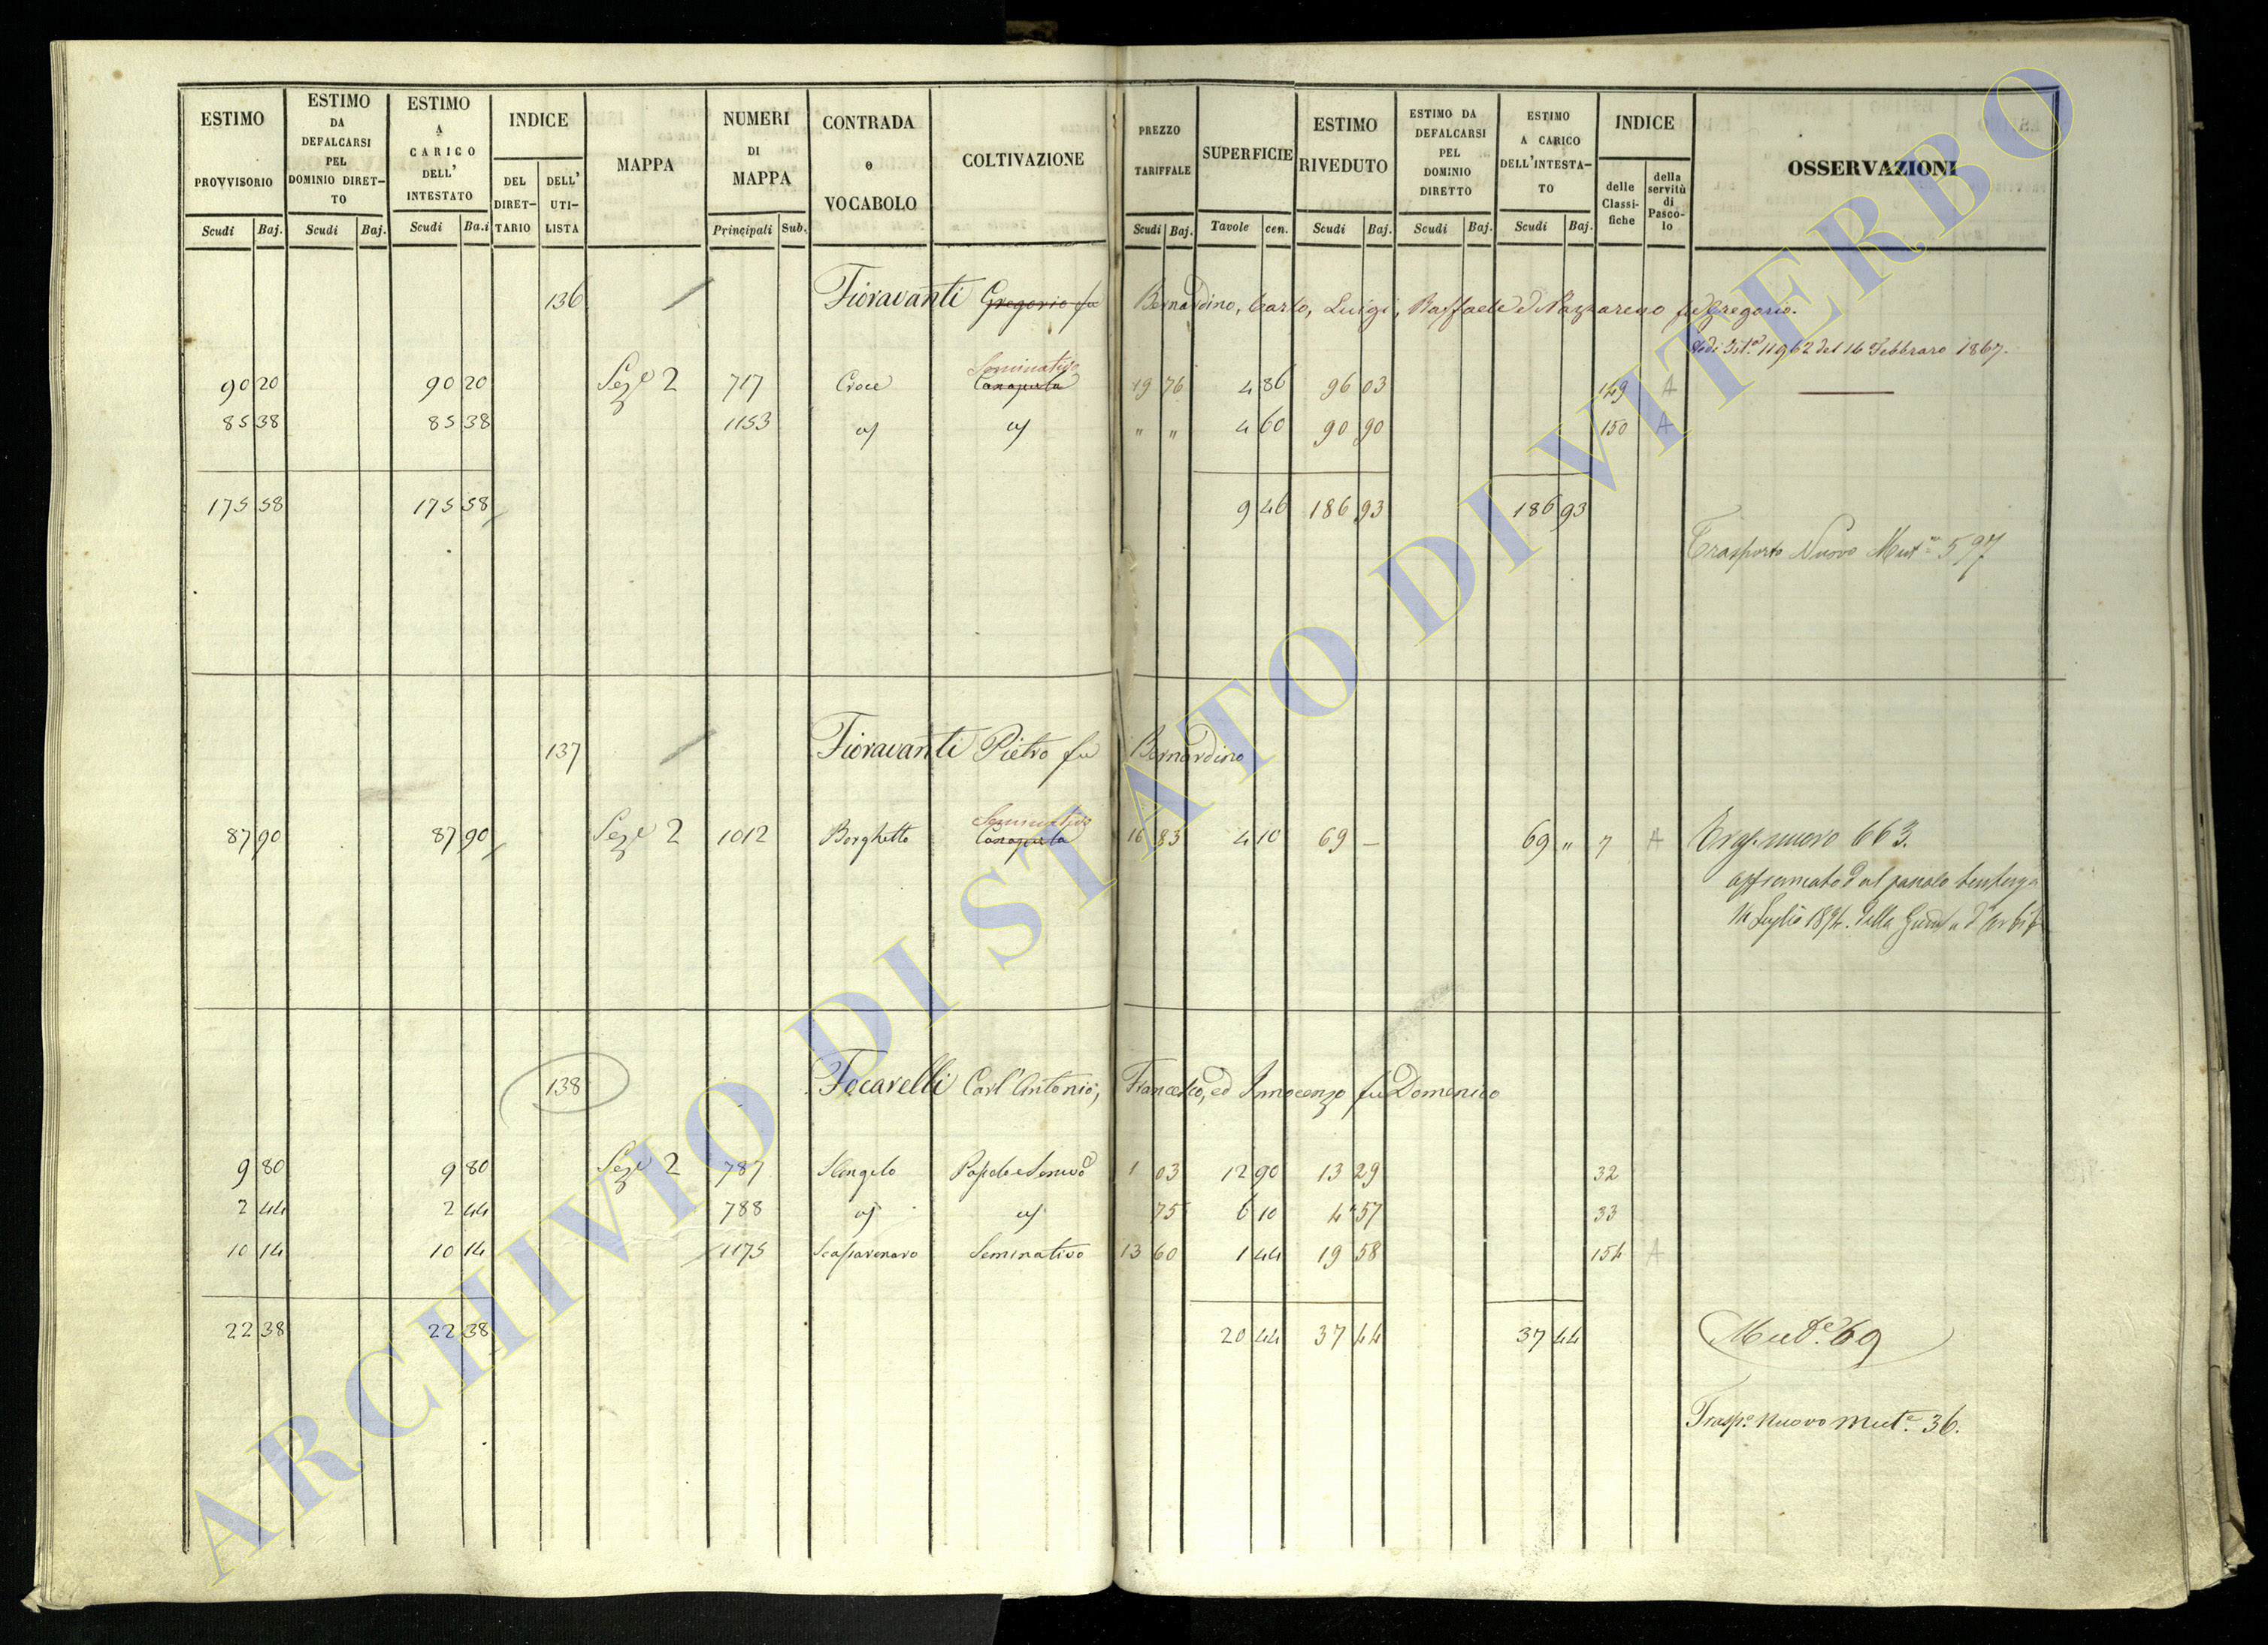 ESTIMO PROVVISORIO Scudi Baj.
ESTIMO DA DEFALCARSI PEL DOMINIO DIRET-TO Scudi Baj.
ESTIMO A CARICO DELL' INTESTATO Scudi Ba.i
INDICE DEL DIRET-TARIO DELL' UTI-LISTA
MAPPA
NUMERI DI MAPPA Principali Sub.
CONTRADA o VOCABOLO
COLTIVAZIONE
PREZZO TARIFFALE Scudi Baj.
SUPERFICIE Tavole cen.
ESTIMO RIVEDUTO Scudi Baj.
ESTIMO DA DEFALCARSI PEL DOMINIO DIRETTO Scudi Baj.
ESTIMO A CARICO DELL'INTESTA-TO Scudi Baj.
INDICE delle Classi-fiche della servitù di Pasco-lo
OSSERVAZIONI
136 Fioravanti Gregorio fu Bernardino, Carlo, Luigi, Raffaele e Nazzareno fu Gregorio.
11962 del 16 Febbraro 1867.
Seminativo
90 20 90 20 Seze 2 717 Croce Canapula 19 76 4 86 96 03 149 A
85 38 85 38 1153 " " 4 60 90 90 150 A
175 58 175 58 9 46 186 93 186 93
Trasporto Nuovo Mute 597
137 Fioravanti Pietro fu Bernardino
Seminativo
87 90 87 90 Seze 2 1012 Borghetto Canapula 16 83 4 10 69 – 69 " 7 A nuovo 663.
affrancato dal pascolo
14 Luglio 1894. della Giunta d'
138 Focarelli Carl'Antonio, Francesco, ed Innocenzo fu Domenico
9 80 9 80 Seze 2 787 S. Angelo 1 03 12 90 13 29 32
2 44 2 44 788 75 6 10 4 57 33
10 14 10 14 1175 Seminativo 13 60 1 44 19 58 154 A
22 38 22 38 20 44 37 44 37 44 Mute. 69
Traspo. Nuovo Mute. 36.
ARCHIVIO DI STATO DI VITERBO